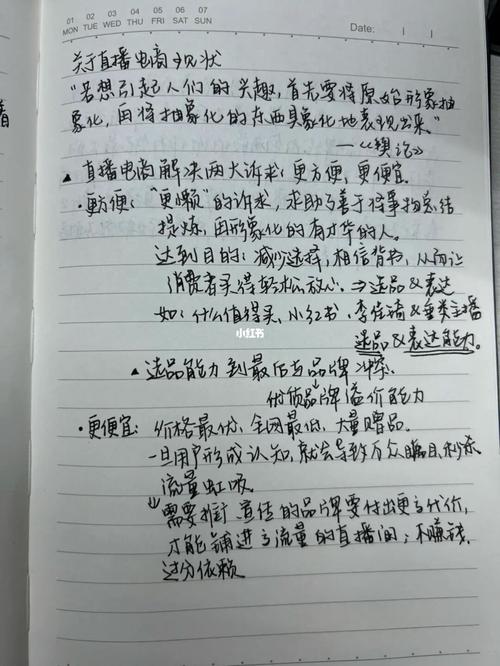 01 02 03 04 05 06 07
MON TUE WED THU FRI SAT SUN
Date:
关于直播电商现状
"若想引起人们的兴趣,首先要将原始形象抽
象化,再将抽象化的东西具象化地表现出来."
——《契诃》
▲直播电商解决两大诉求:更方便,更便宜.
·更方便:"更懒"的诉求,求助与善于将事物总结
提炼,再形象化的有才华的人。
达到目的:减少选择,相信背书,从而让
消费者买得轻松放心.⇒选品&表达
如:什么值得买、小红书、李佳琦&垂类主播
选品&表达能力。
小红书
▲选品能力到最后与品牌冲突.
优质品牌溢价能力
·更便宜:价格最优,全网最低,大量赠品.
一旦用户形成认知,就会导致万众瞩目,秒杀
流量虹吸.
需要推广宣传的品牌要付出更多代价,
才能铺进高流量的直播间;不赚钱,
过分依赖